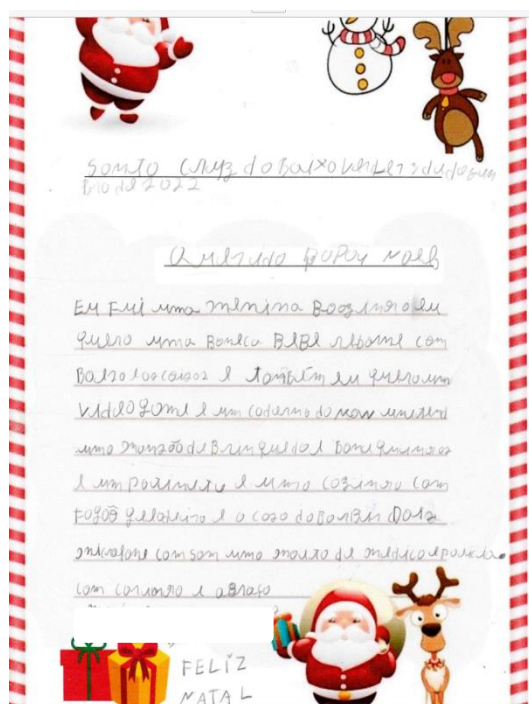 Santa Cruz da Baixa Verde 13 de dezem
bro de 2022
Querido Papai Noel
Eu Fui uma menina Boazinha eu
quero uma Boneca BEBE reborne com
e tambem eu quero um
Video game e um caderno da
uma de Brinquedo e bonequinhas
e um patinete e uma cozinha com
Fogão geladeira e a casa da Barbie Dois
microfone com som uma maleta de medica e
com carinho e abraço
FELIZ
NATAL